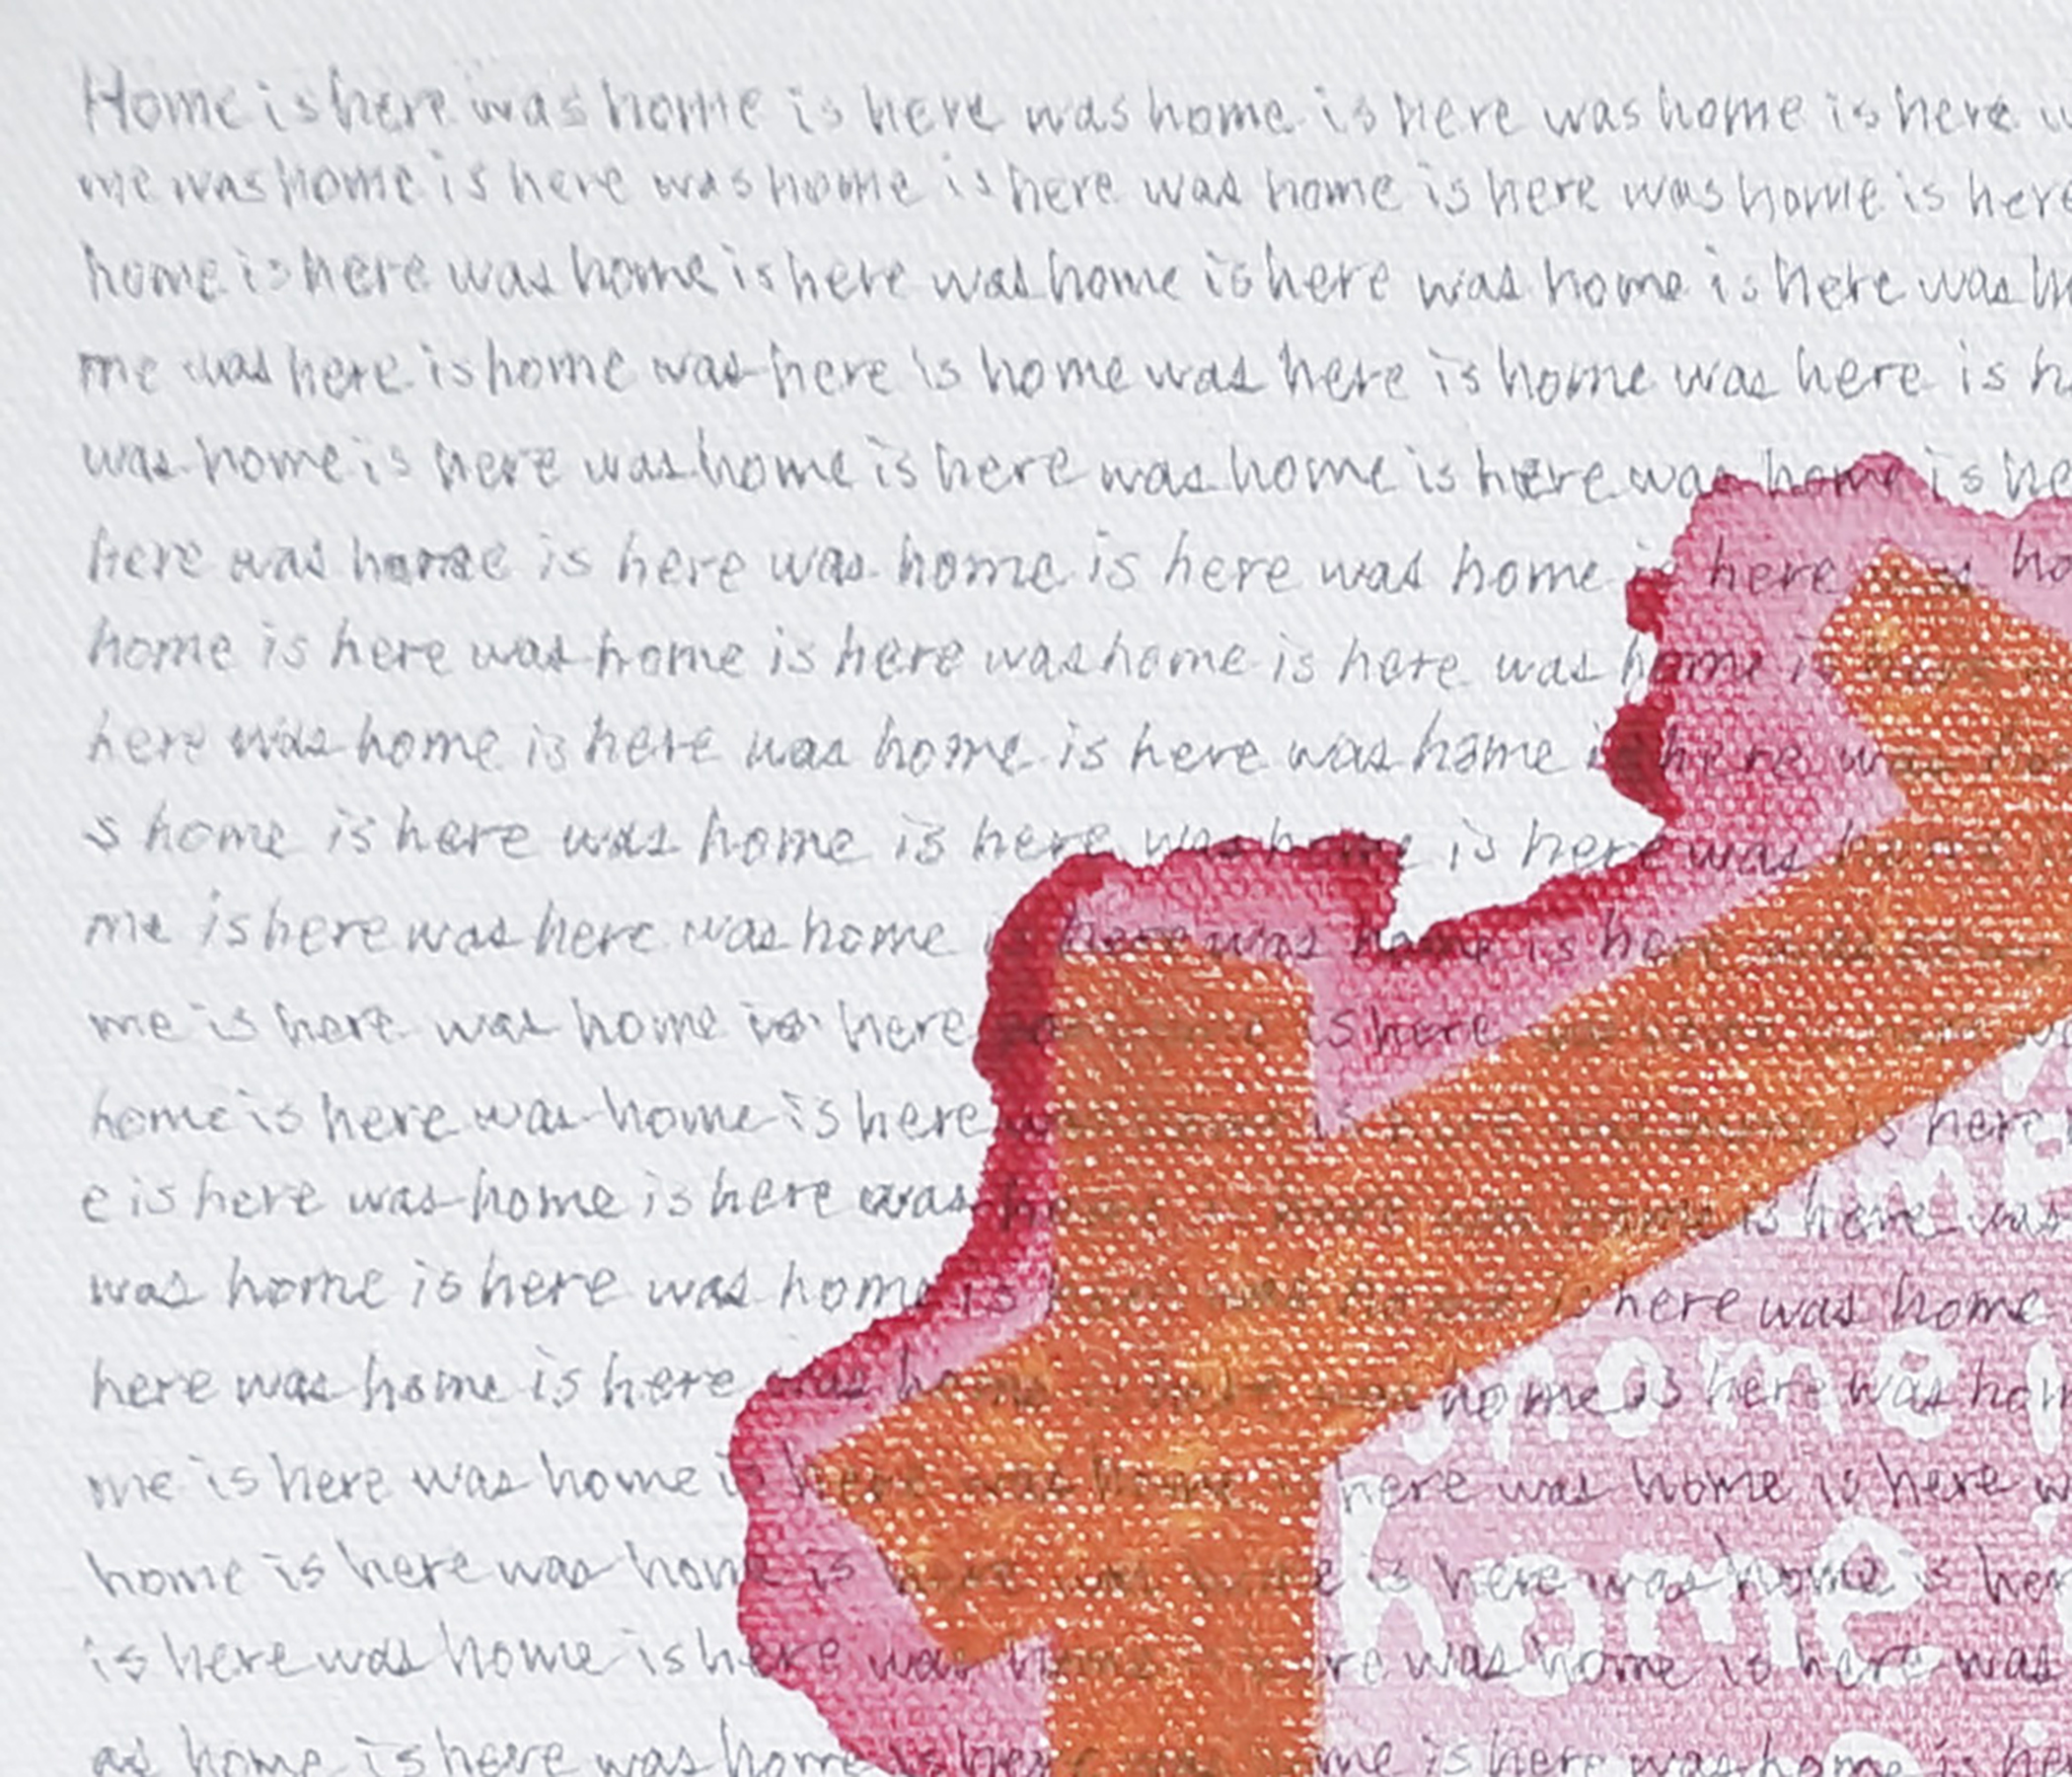 Home is here was home is here was home is here was home is here
me was home is here was home is here was home is here was home is here
home is here was home is here was home is here was home is here was
me was here is home was here is home was here is home was here is
was home is here was home is here was home is here was home is
here was home is here was home is here was home is here was
home is here was home is here was home is here was home is
here was home is here was home is here was home is here was
s home is here was home is here was home is here was home
me is here was here was home is here was home is
me is here was home is here is here
home is here was home is here is here
e is here was home is here was is here was
was home is here was home is here was home
here was home is here was home is here was
home
me is here was home is here was home is here was home is here
home is here was home is is here was home is
home
is here was home is here was home was home is here was
as home is here was home is here me is here was home is